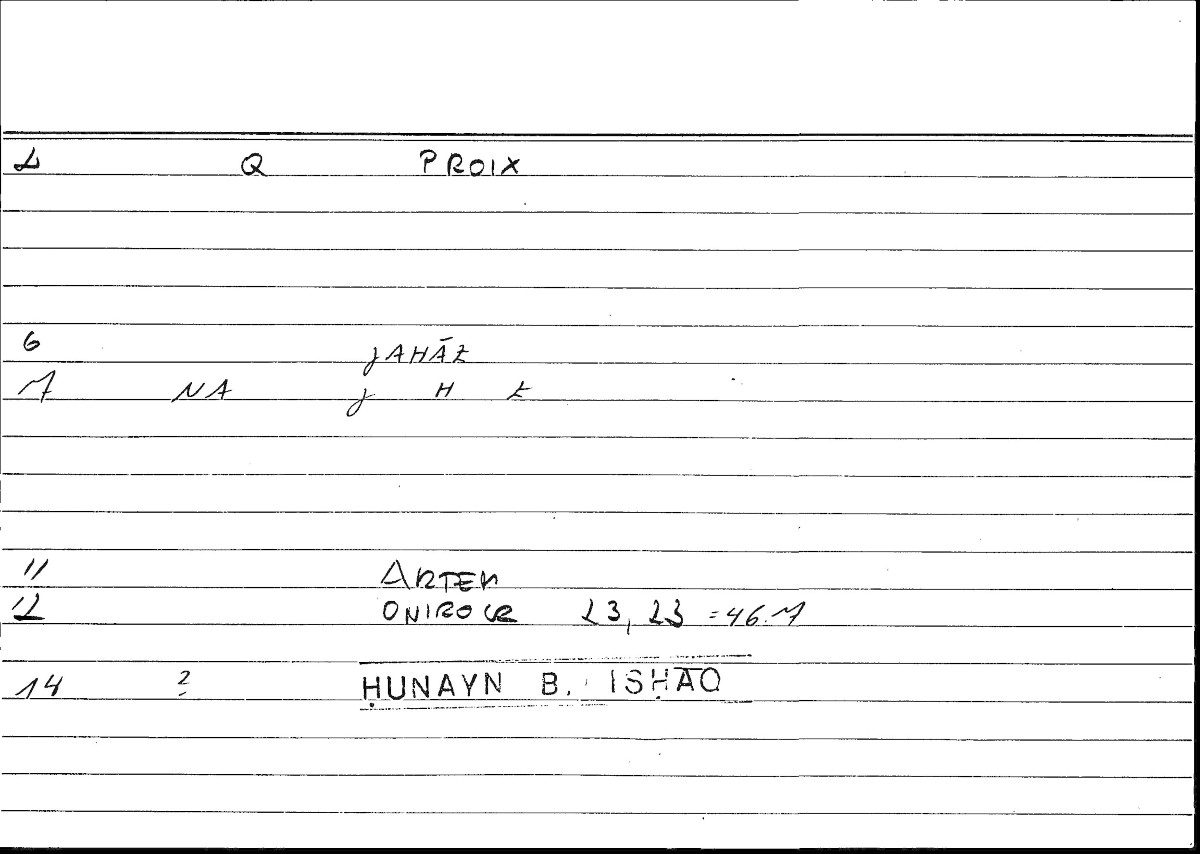 2 Q PROIX
6 JAHĀZ
7 NA J H Z
11 ARTEM
12 ONIROCR 23, 23 = 46.7
14 ? ḤUNAYN B. ISḤĀQ